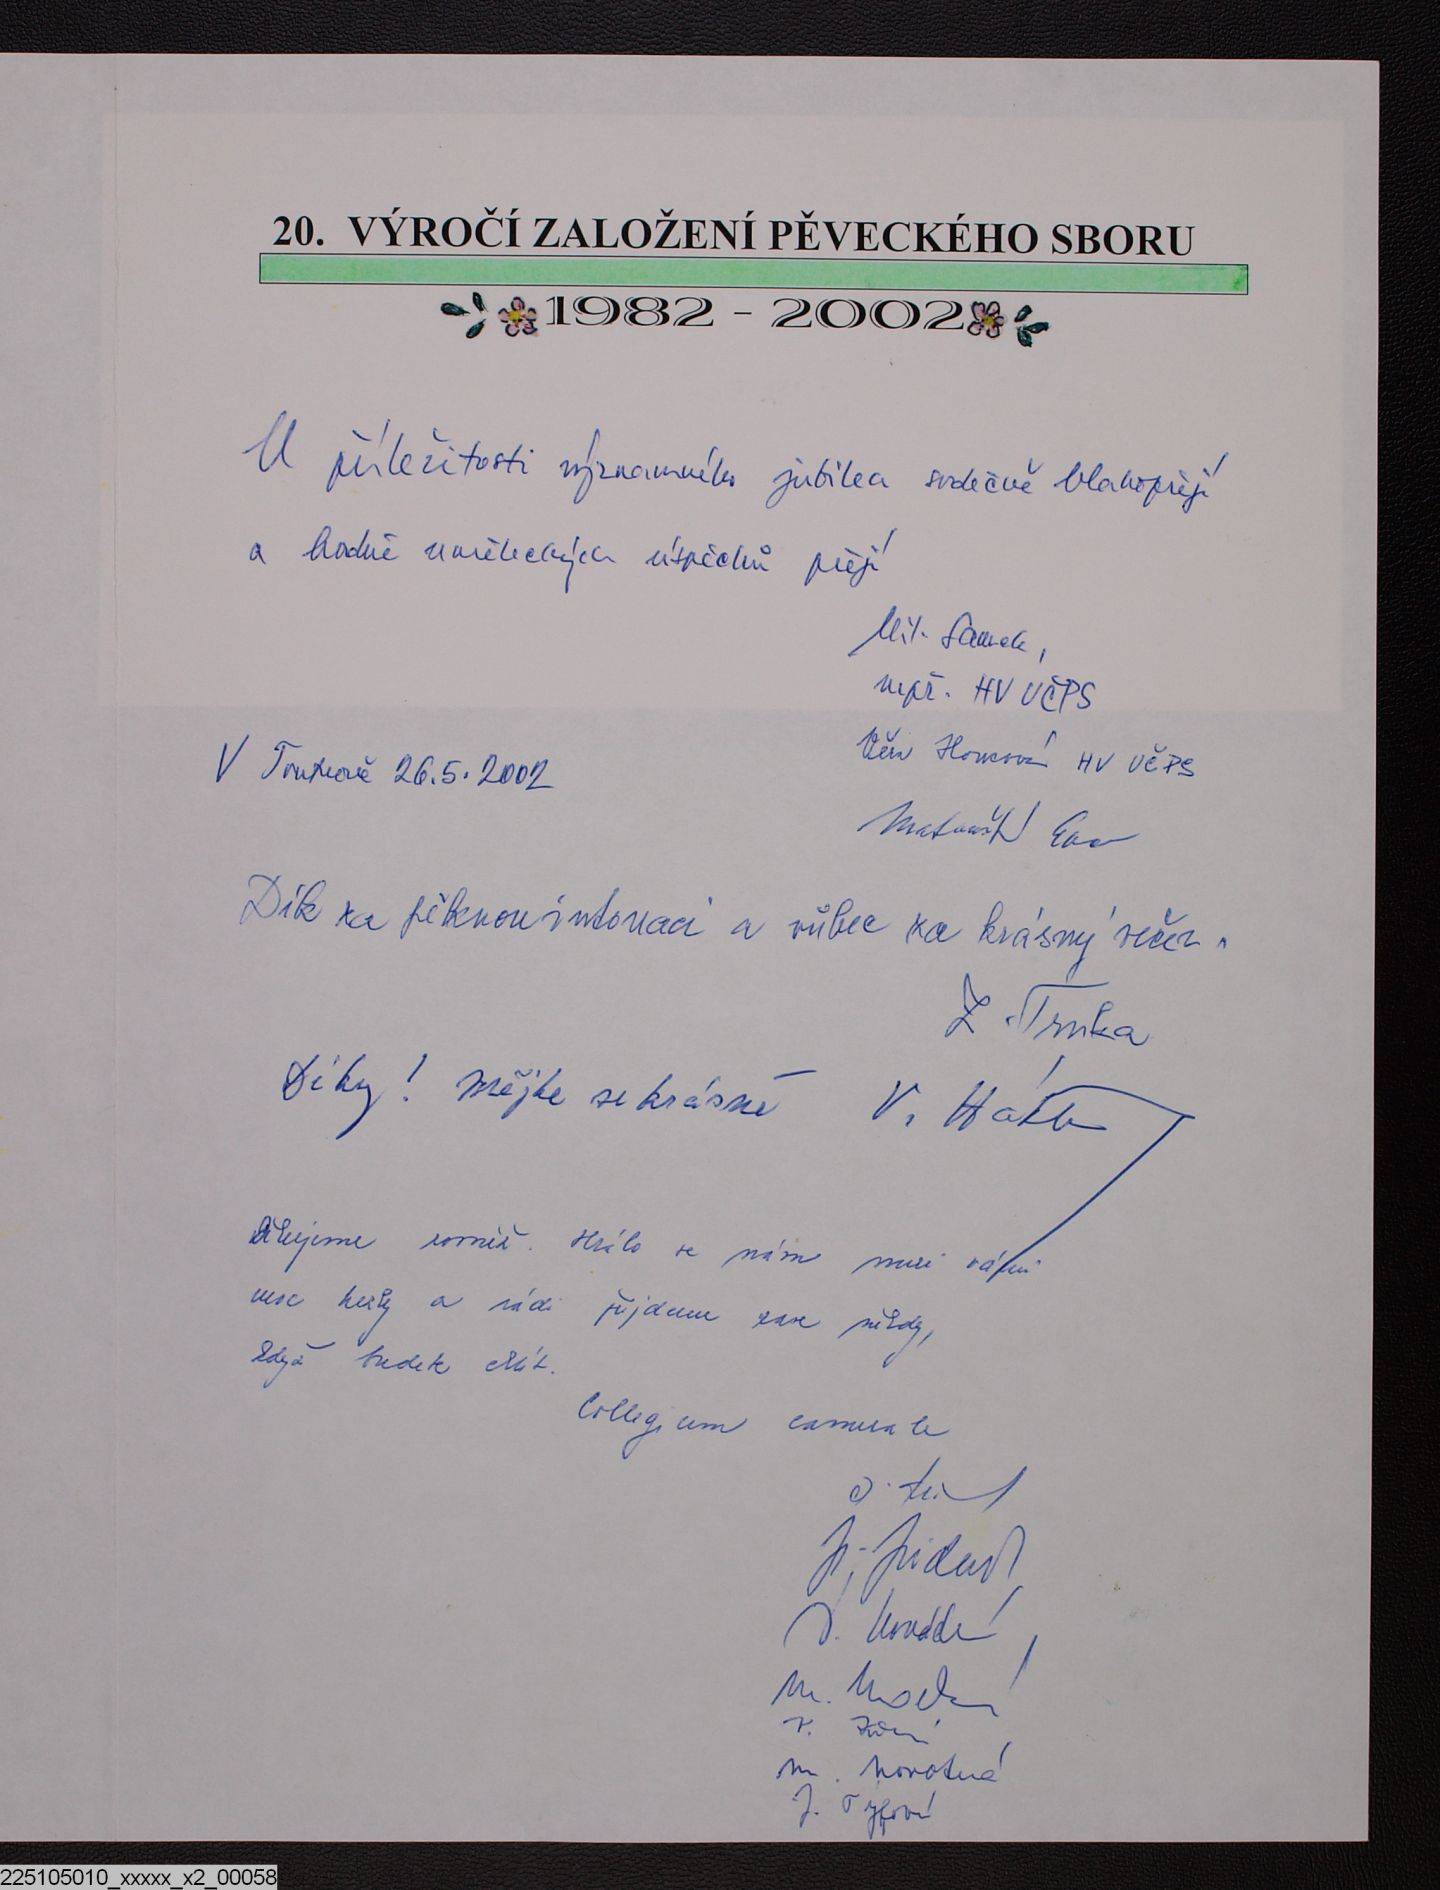 20. VÝROČÍ ZALOŽENÍ PĚVECKÉHO SBORU
1982 - 2002
U příležitosti významného jubilea srdečně blahopřejí
a hodně uměleckých úspěchů přejí
Mil. Samek,
HV UČPS
Věra HV UČPS
V 26.5.2002
Eva
Dík za pěknou intonaci a vůbec za krásný večer.
Z. Trnka
Díky! Mějte se krásně V.
Děkujeme rovněž. Hrálo se nám mezi vámi
moc hezky a rádi přijdeme zase někdy,
když budete chtít.
Collegium camerale
M. Novotná
J. Týfová
225105010_xxxxx_x2_00058